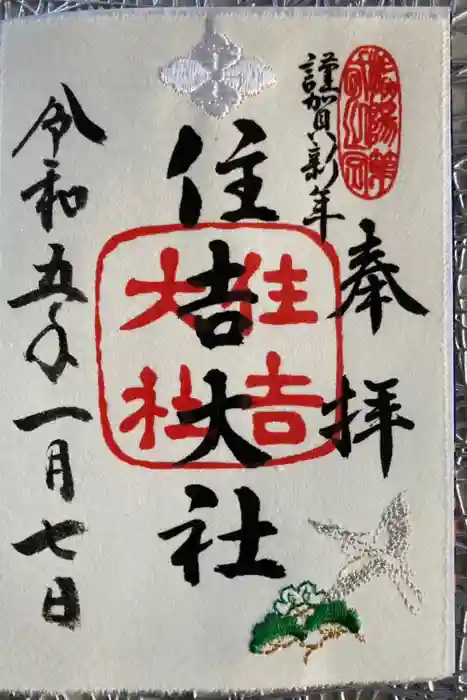 奉拝
謹賀新年
住吉大社
住吉
大社
令和五年一月七日